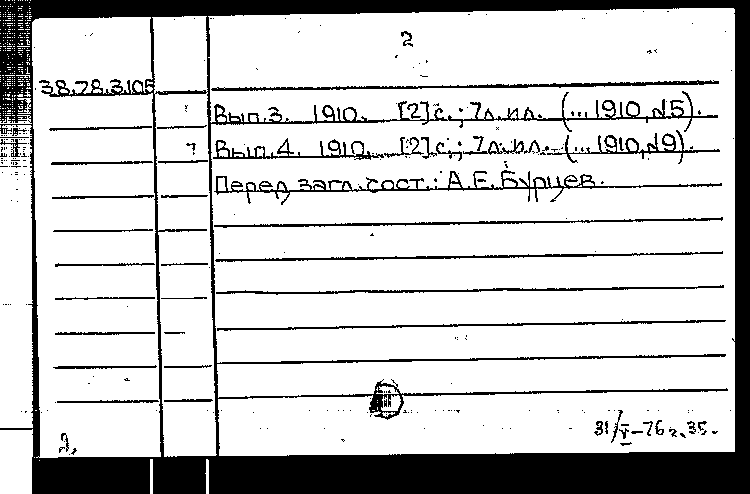 2
38.78.3.105
Вып.3. 1910. [2]с.; 7л.ил. (...1910,№5).
Вып.4. 1910. [2]с.; 7л.ил. (...1910,№9).
Перед загл. сост.: А.Е.Бурцев.
31/V-76г. 35.
2.